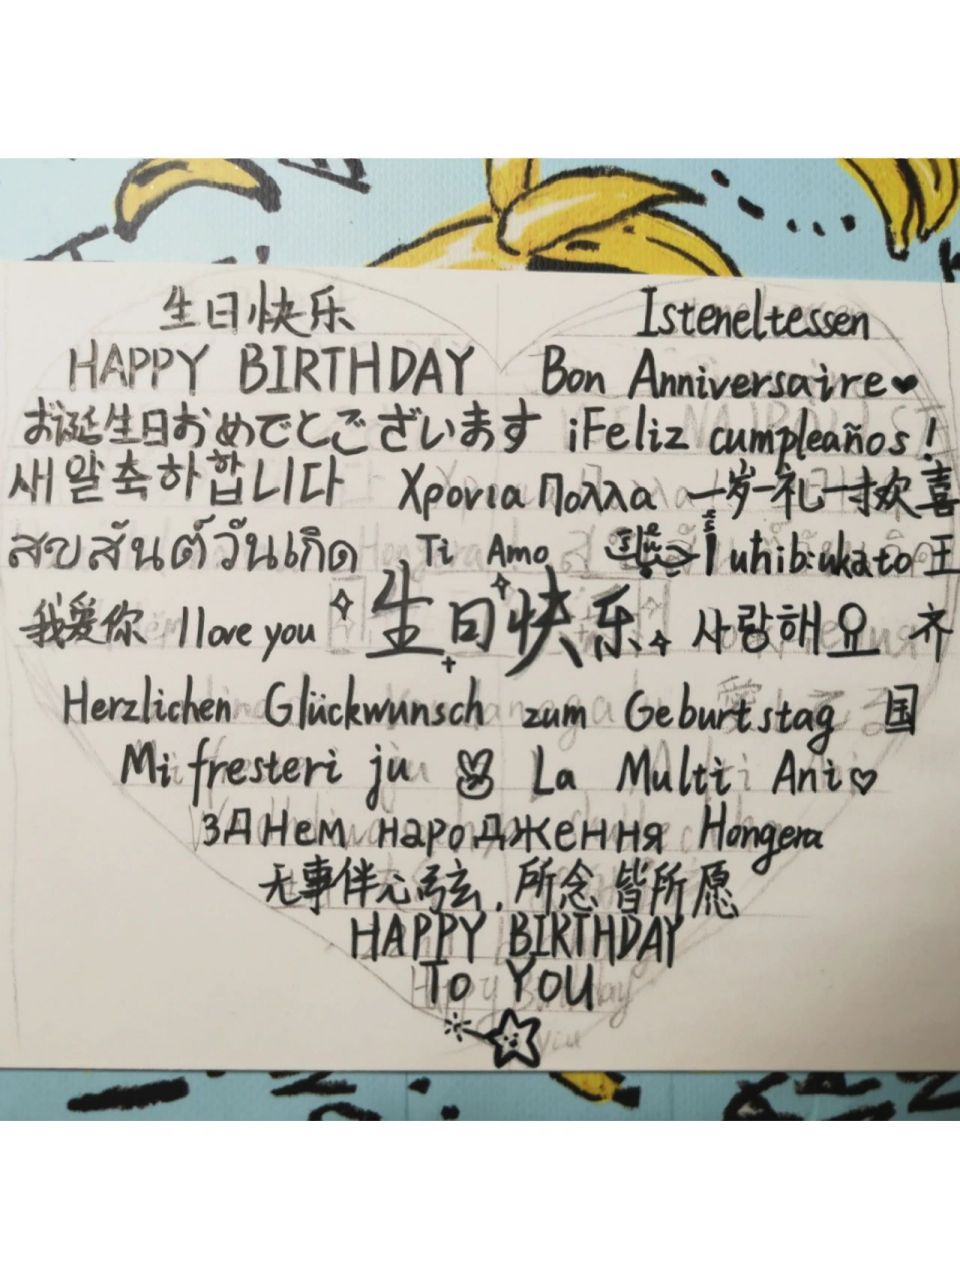 生日快乐 Isteneltessen
HAPPY BIRTHDAY Bon Anniversaire
お诞生日おめでとございます ¡Feliz cumpleaños!
새알축하합니다 Χρονια Πολλα 一岁一礼一寸欢喜
สขสันต์วันเกิด Ti Amo uhibukato 王
我爱你 I love you 生日快乐 사랑해요 齐
Herzlichen Glückwunsch zum Geburtstag 国
Mi fresteri ju La Multi Ani
ЗДнем нарождження Hongera
无事伴心弦,所念皆所愿
HAPPY BIRTHDAY
To YOU